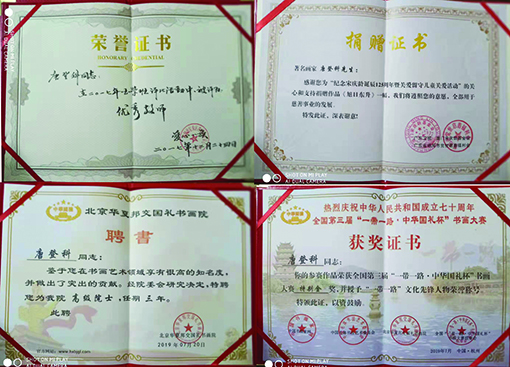 荣誉证书
HONORARY CREDENTIAL
唐登科同志:
优秀教师
SHOT ON MI PLAY
AI DUAL CAMERA
捐赠证书
著名画家 唐登科先生:
感谢您为“纪念宋庆龄诞辰125周年暨关爱留守儿童关爱活动”的关
心和支持捐赠作品《旭日东升》一幅,我们将遵照您的意愿,全部用于
慈善事业的发展。
特发此证,深表谢意!
SHOT ON MI PLAY
AI DUAL CAMERA
北京华夏邦交国礼书画院
聘书
唐登科 同志:
鉴于您在书画艺术领域享有很高的知名度,
并做出了突出的贡献。经院委会研究决定,特聘
您为我院 高级院士,任期 三年。
此聘
2019年07月20日
SHOT ON MI PLAY
AI DUAL CAMERA
热烈庆祝中华人民共和国成立七十周年
全国第三届“一带一路·中华国礼杯”书画大赛
获奖证书
唐登科 同志:
你的参赛作品荣获全国第三届“一带一路·中华国礼杯”书画
大赛 特别金 奖,并授予“一带一路”文化先锋人物荣誉称号。
特颁此证,以资鼓励。
SHOT ON MI PLAY
AI DUAL CAMERA